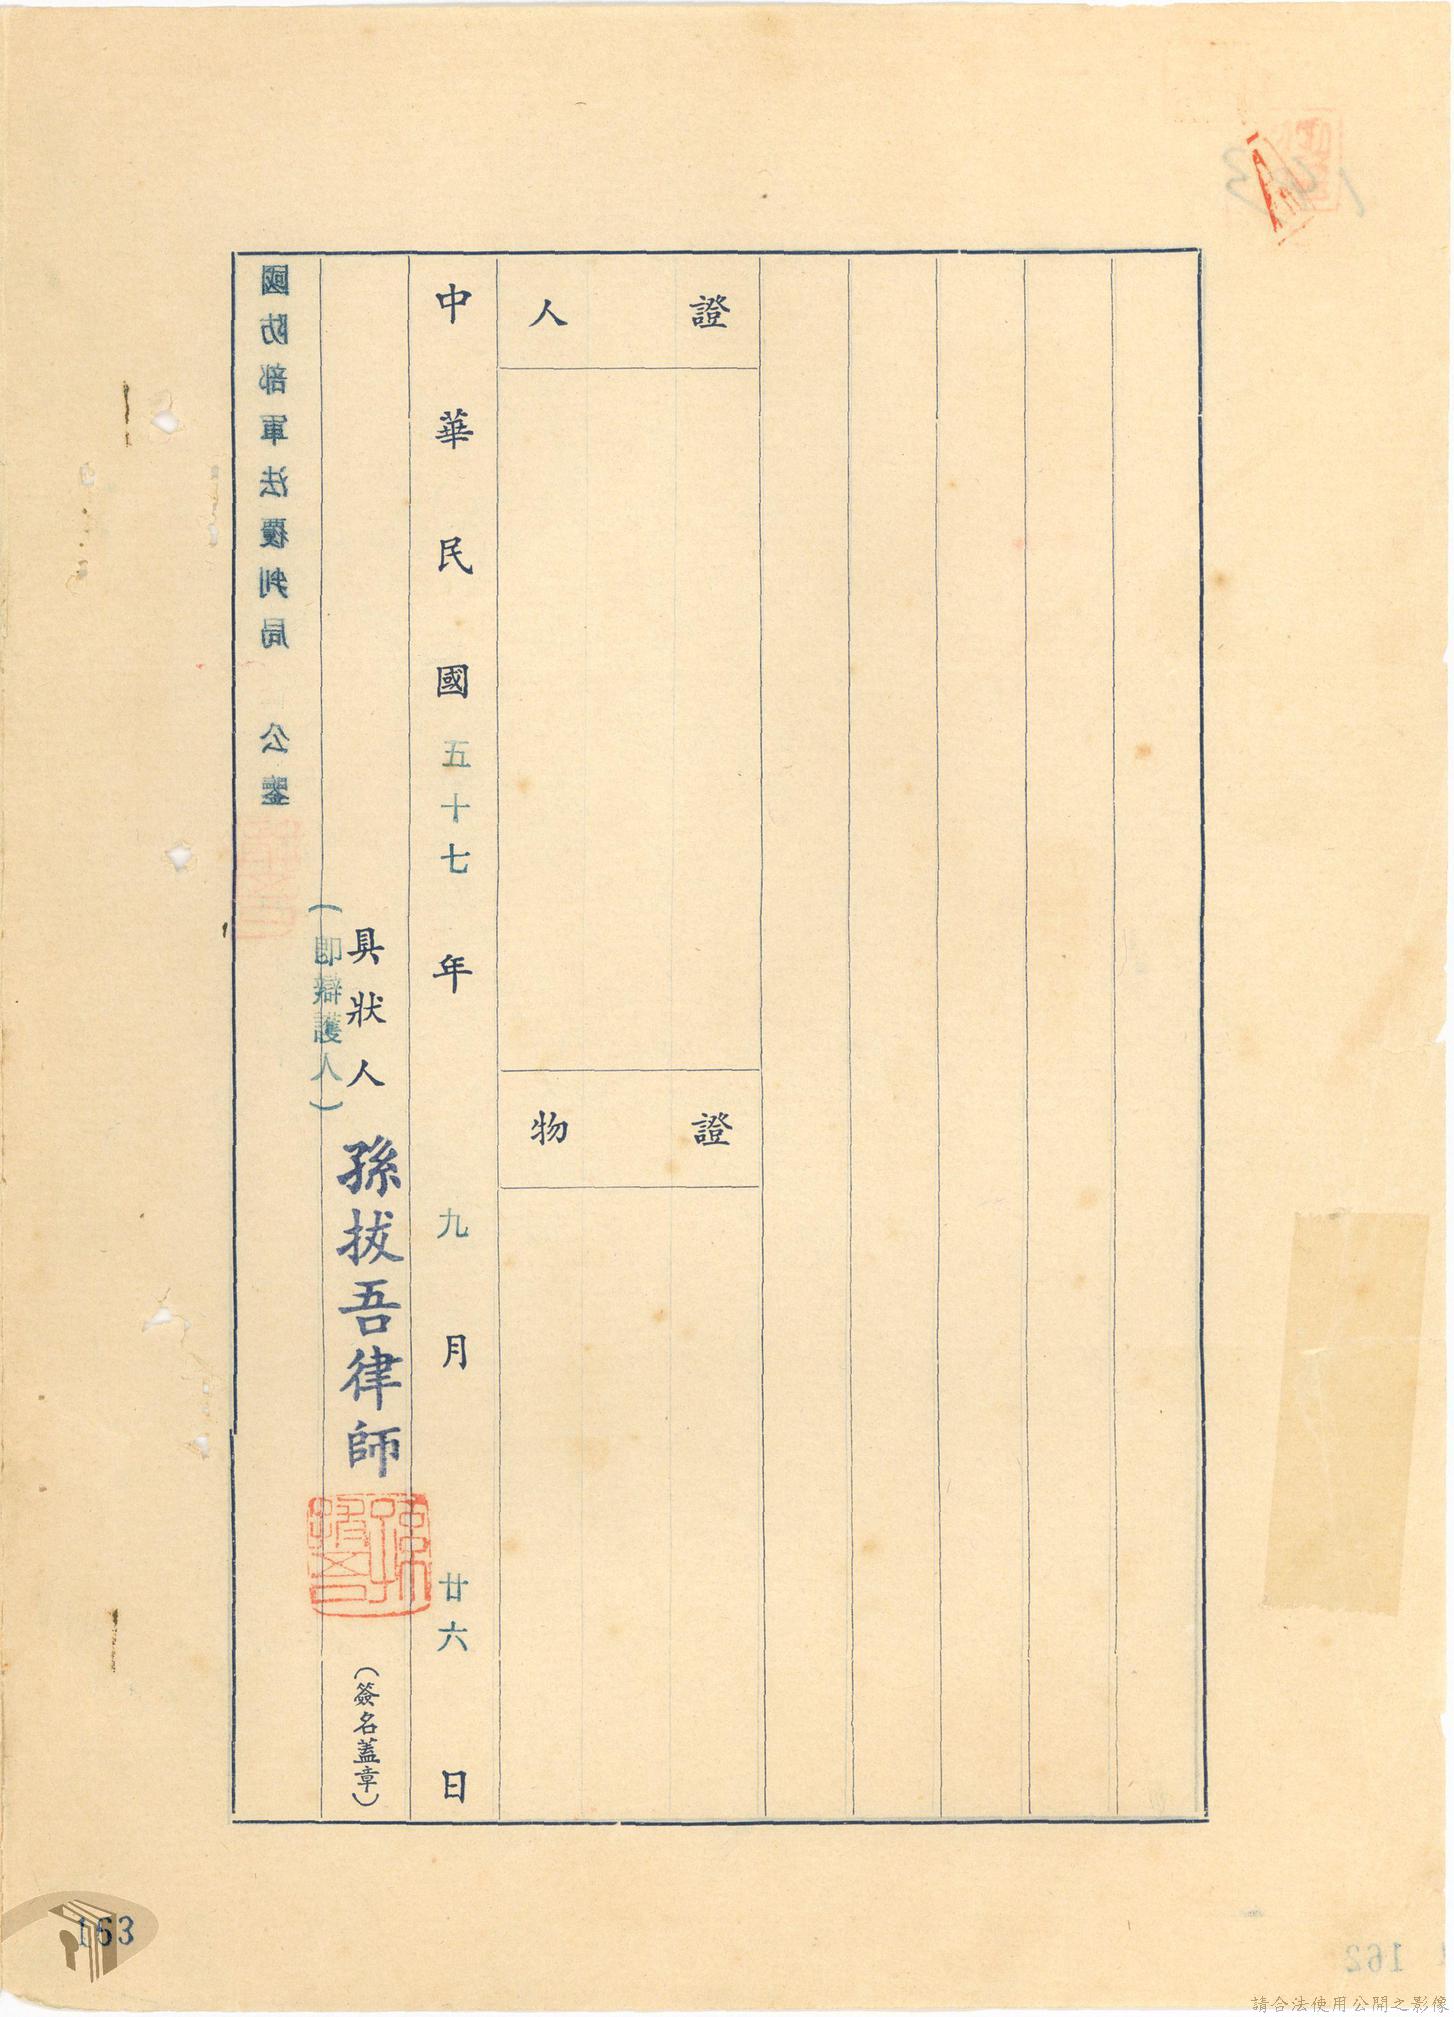 證人
證物
中華民國五十七年九月廿六日
具狀人 孫拔吾律師 (簽名蓋章)
(即辯護人)
國防部軍法覆判局 公鑒
163
162
請合法使用公開之影像